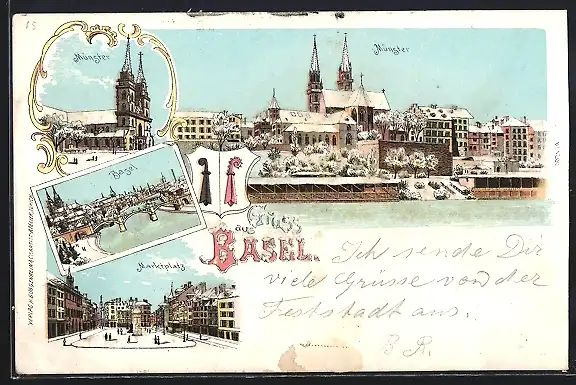 15
Münster
Münster
Basel
Gruss
aus
BASEL.
Marktplatz
Ich sende Dir
viele Grüsse von der
Feststadt aus.
B R.